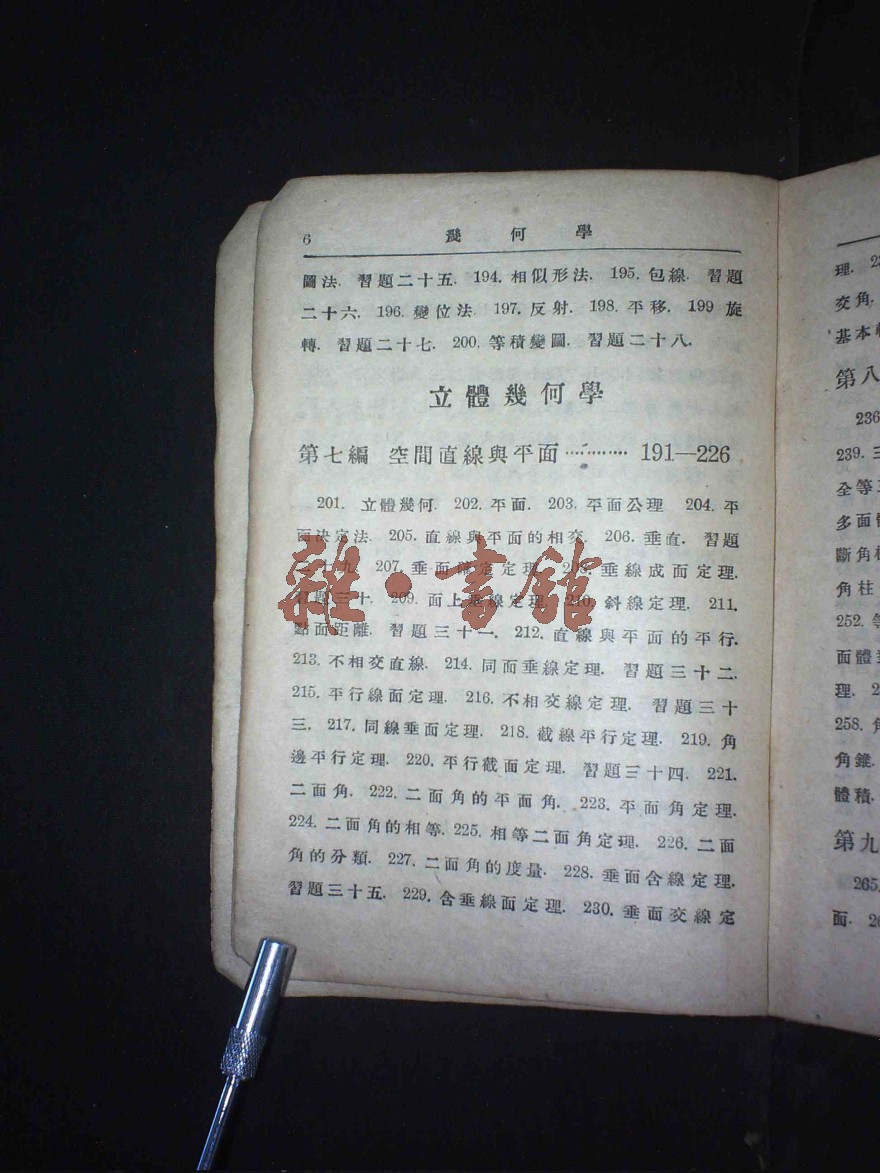 6 幾何學
圖法. 習題二十五. 194. 相似形法. 195. 包線. 習題
二十六. 196. 變位法. 197. 反射. 198. 平移. 199 旋
轉. 習題二十七. 200. 等積變圖. 習題二十八.
立體幾何學
第七編 空間直線與平面………… 191—226
201. 立體幾何. 202. 平面. 203. 平面公理 204. 平
面決定法. 205. 直線與平面的相交. 206. 垂直. 習題
二十九. 207. 垂面確定定理. 208. 垂線成面定理.
習題三十. 209. 面上垂線定理. 210. 斜線定理. 211.
點面距離. 習題三十一. 212. 直線與平面的平行.
213. 不相交直線. 214. 同面垂線定理. 習題三十二.
215. 平行線面定理. 216. 不相交線定理. 習題三十
三. 217. 同線垂面定理. 218. 截線平行定理. 219. 角
邊平行定理. 220. 平行截面定理. 習題三十四. 221.
二面角. 222. 二面角的平面角. 223. 平面角定理.
224. 二面角的相等. 225. 相等二面角定理. 226. 二面
角的分類. 227. 二面角的度量. 228. 垂面含線定理.
習題三十五. 229. 含垂線面定理. 230. 垂面交線定
雜·書館
理.
交角.
基本
第八
236
239. 三
全等
多面
斷角
角柱
252. 等
面體
理. 2
258.
角錐.
體積.
第九
265.
面. 26